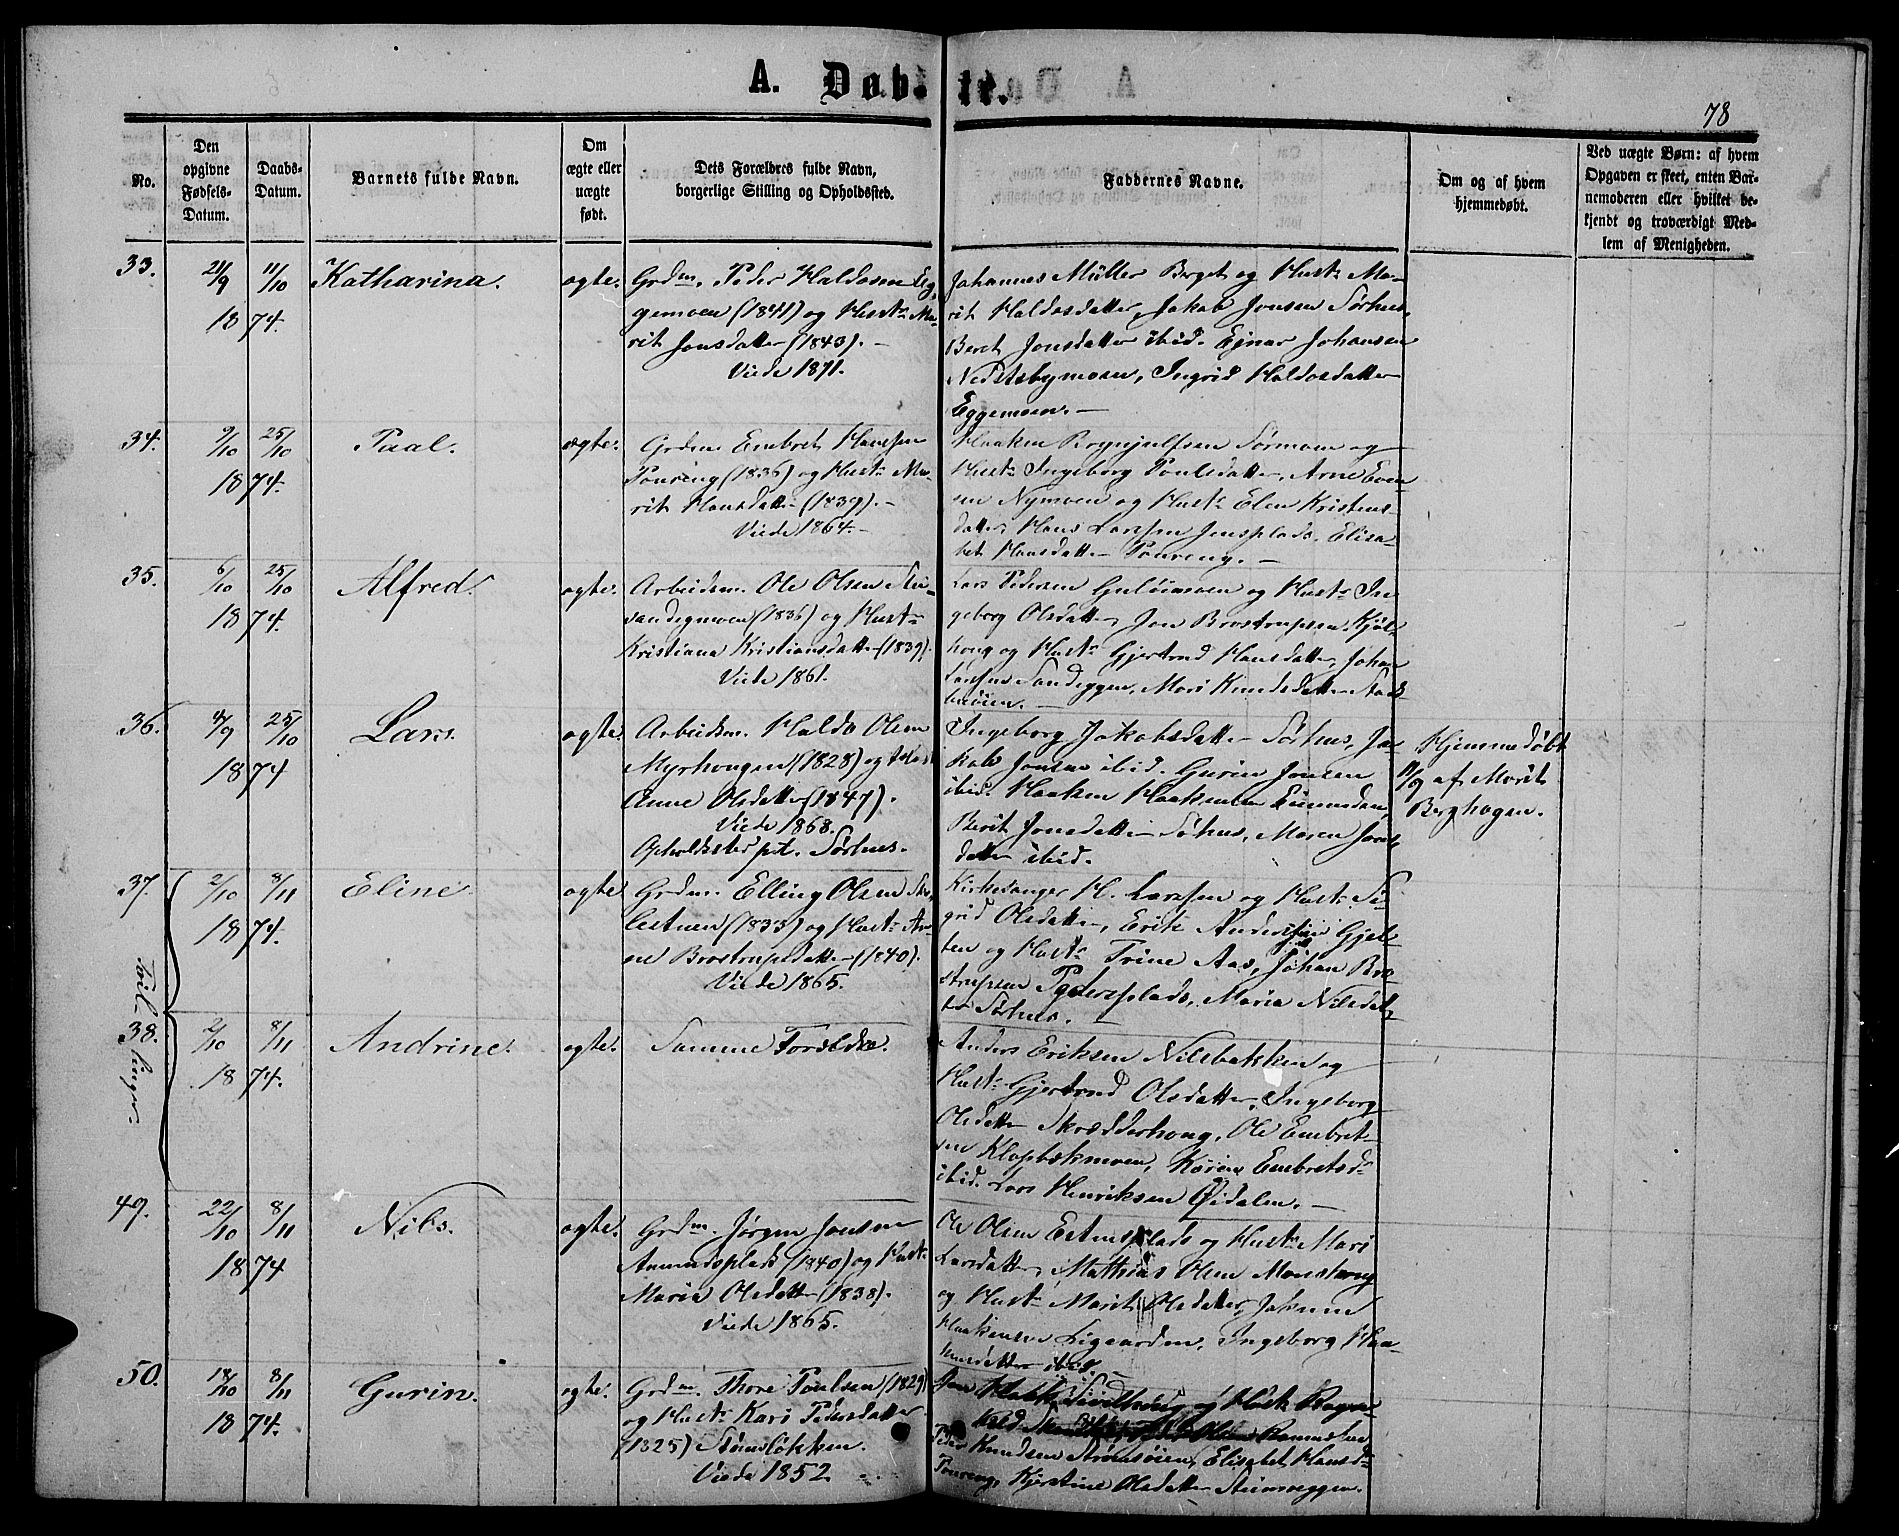 A. Døb- te.
78
No.
Den opgivne Fødsels-Datum.
Daabs-Datum.
Barnets fulde Navn.
Om ægte eller uægte født.
Dets Forældres fulde Navn,
borgerlige Stilling og Opholdssted.
Faddernes Navne.
Om og af hvem
hjemmedøbt.
Ved uægte Børn: af hvem
Opgaven er skeet, enten Bar-
nemoderen eller hvilket be-
kjendt og troværdigt Med-
lem af Menigheden.
33. 21/9 1874. 11/10 Katharina. ægte.
Grdm. Peder Haldosen Eg-
gemoen (1841) og Hustr. Ma-
rit Jonsdatter (1843). -
Viede 1871.
Johannes Müller Berget og Hustr. Ma-
rit Haldosdatter, Jakob Jonsen Sørhus,
Beret Jonsdatter ibid. Ejnar Johansen
Ingrid Haldosdatter
Eggemoen. -
34. 9/10 1874. 25/10 Paal. ægte.
Grdm. Embret Hansen
Poureng (1836) og Hustr. Ma-
rit Hansdatter (1839). -
Viede 1864. -
Haaken Brynjulfsen Sørmoen og
Hustr. Ingeborg Poulsdatter, Arne Even-
sen Nymoen og Hustr. Elen Kristens-
datter, Hans Larssen Jensplads, Elisa-
bet Hansdatter Poureng. -
35. 6/10 1874. 25/10 Alfred. ægte.
Arbeidsm. Ole Olsen
(1836) og Hustr.
Kristiana Kristiansdatter (1839).
Viede 1861.
Lars Pedersen og Hustr. In-
geborg Olsdatter, Jon Brostrupsen Kjøl-
houg og Hustr. Gjertrud Hansdatter, Johan
Larssen Sandeggen, Mari Knudsdatter
36. 4/9 1874 25/10 Lars. ægte.
Arbeidsm. Haldo Olsen
Myrhougen (1828) og Hustr.
Anne Olsdatter (1847).
Viede 1868.
Opholdssted pt. Sørhus.
Ingeborg Jakobsdatter Sørhus, Ja-
kob Jonsen ibid. Gurin Jonsen
ibid. Haaken Haakensen
Berit Jonsdatter Sørhus, Maren Jons-
datter ibid.
Hjemmedøbt
11/9 af Marit
Berghagen.
37. 2/10 1874. 8/11 Eline. ægte
Grdm. Elling Olsen
(1833) og Hustr. An-
ne Brostrupsdatter (1840).
Viede 1865.
Kirkesanger H. Larssen og Hustr. Si-
grid Olsdatter, Erik Anderssen Gjel-
ten og Hustr. Trine Aas, Johan Bro-
strupsen Pedersplads, Maria Nilsdat-
ter Sørhus. -
Tvillinger
38. 2/10 1874. 8/11 Andrine. ægte.
Samme Forældre.
Anders Eriksen Nilsbakken og
Hustr. Gjertrud Olsdatter, Ingeborg
Olsdatter Skrædderhoug, Ole Embret-
sen Klopbækmoen, Karen Embretsd.
ibid. Lars Henriksen Øidalen. -
49. 22/10 1874 8/11 Nils. ægte.
Grdm. Jørgen Jonsen
Amundsplads (1840) og Hustr.
Maria Olsdatter (1838).
Viede 1865.
Ole Olsen Estensplads og Hustr. Mari
Larsdatter, Mathias Olsen Monshoug
og Hustr. Marit Olsdatter,
Haakensen Ligaarden, Ingeborg Haa-
kensdatter ibid. -
50. 18/10 1874. 8/11 Gurin. ægte.
Grdm. Thore Poulsen (1829)
og Hustr. Kari Pedersdatter
(1825)
Viede 1852.
Jon og Hustr. Ragn-
Olsen
Peder Knudsen Strømsøien, Elisabet Hansd.
Poureng, Kjerstine Olsdatter